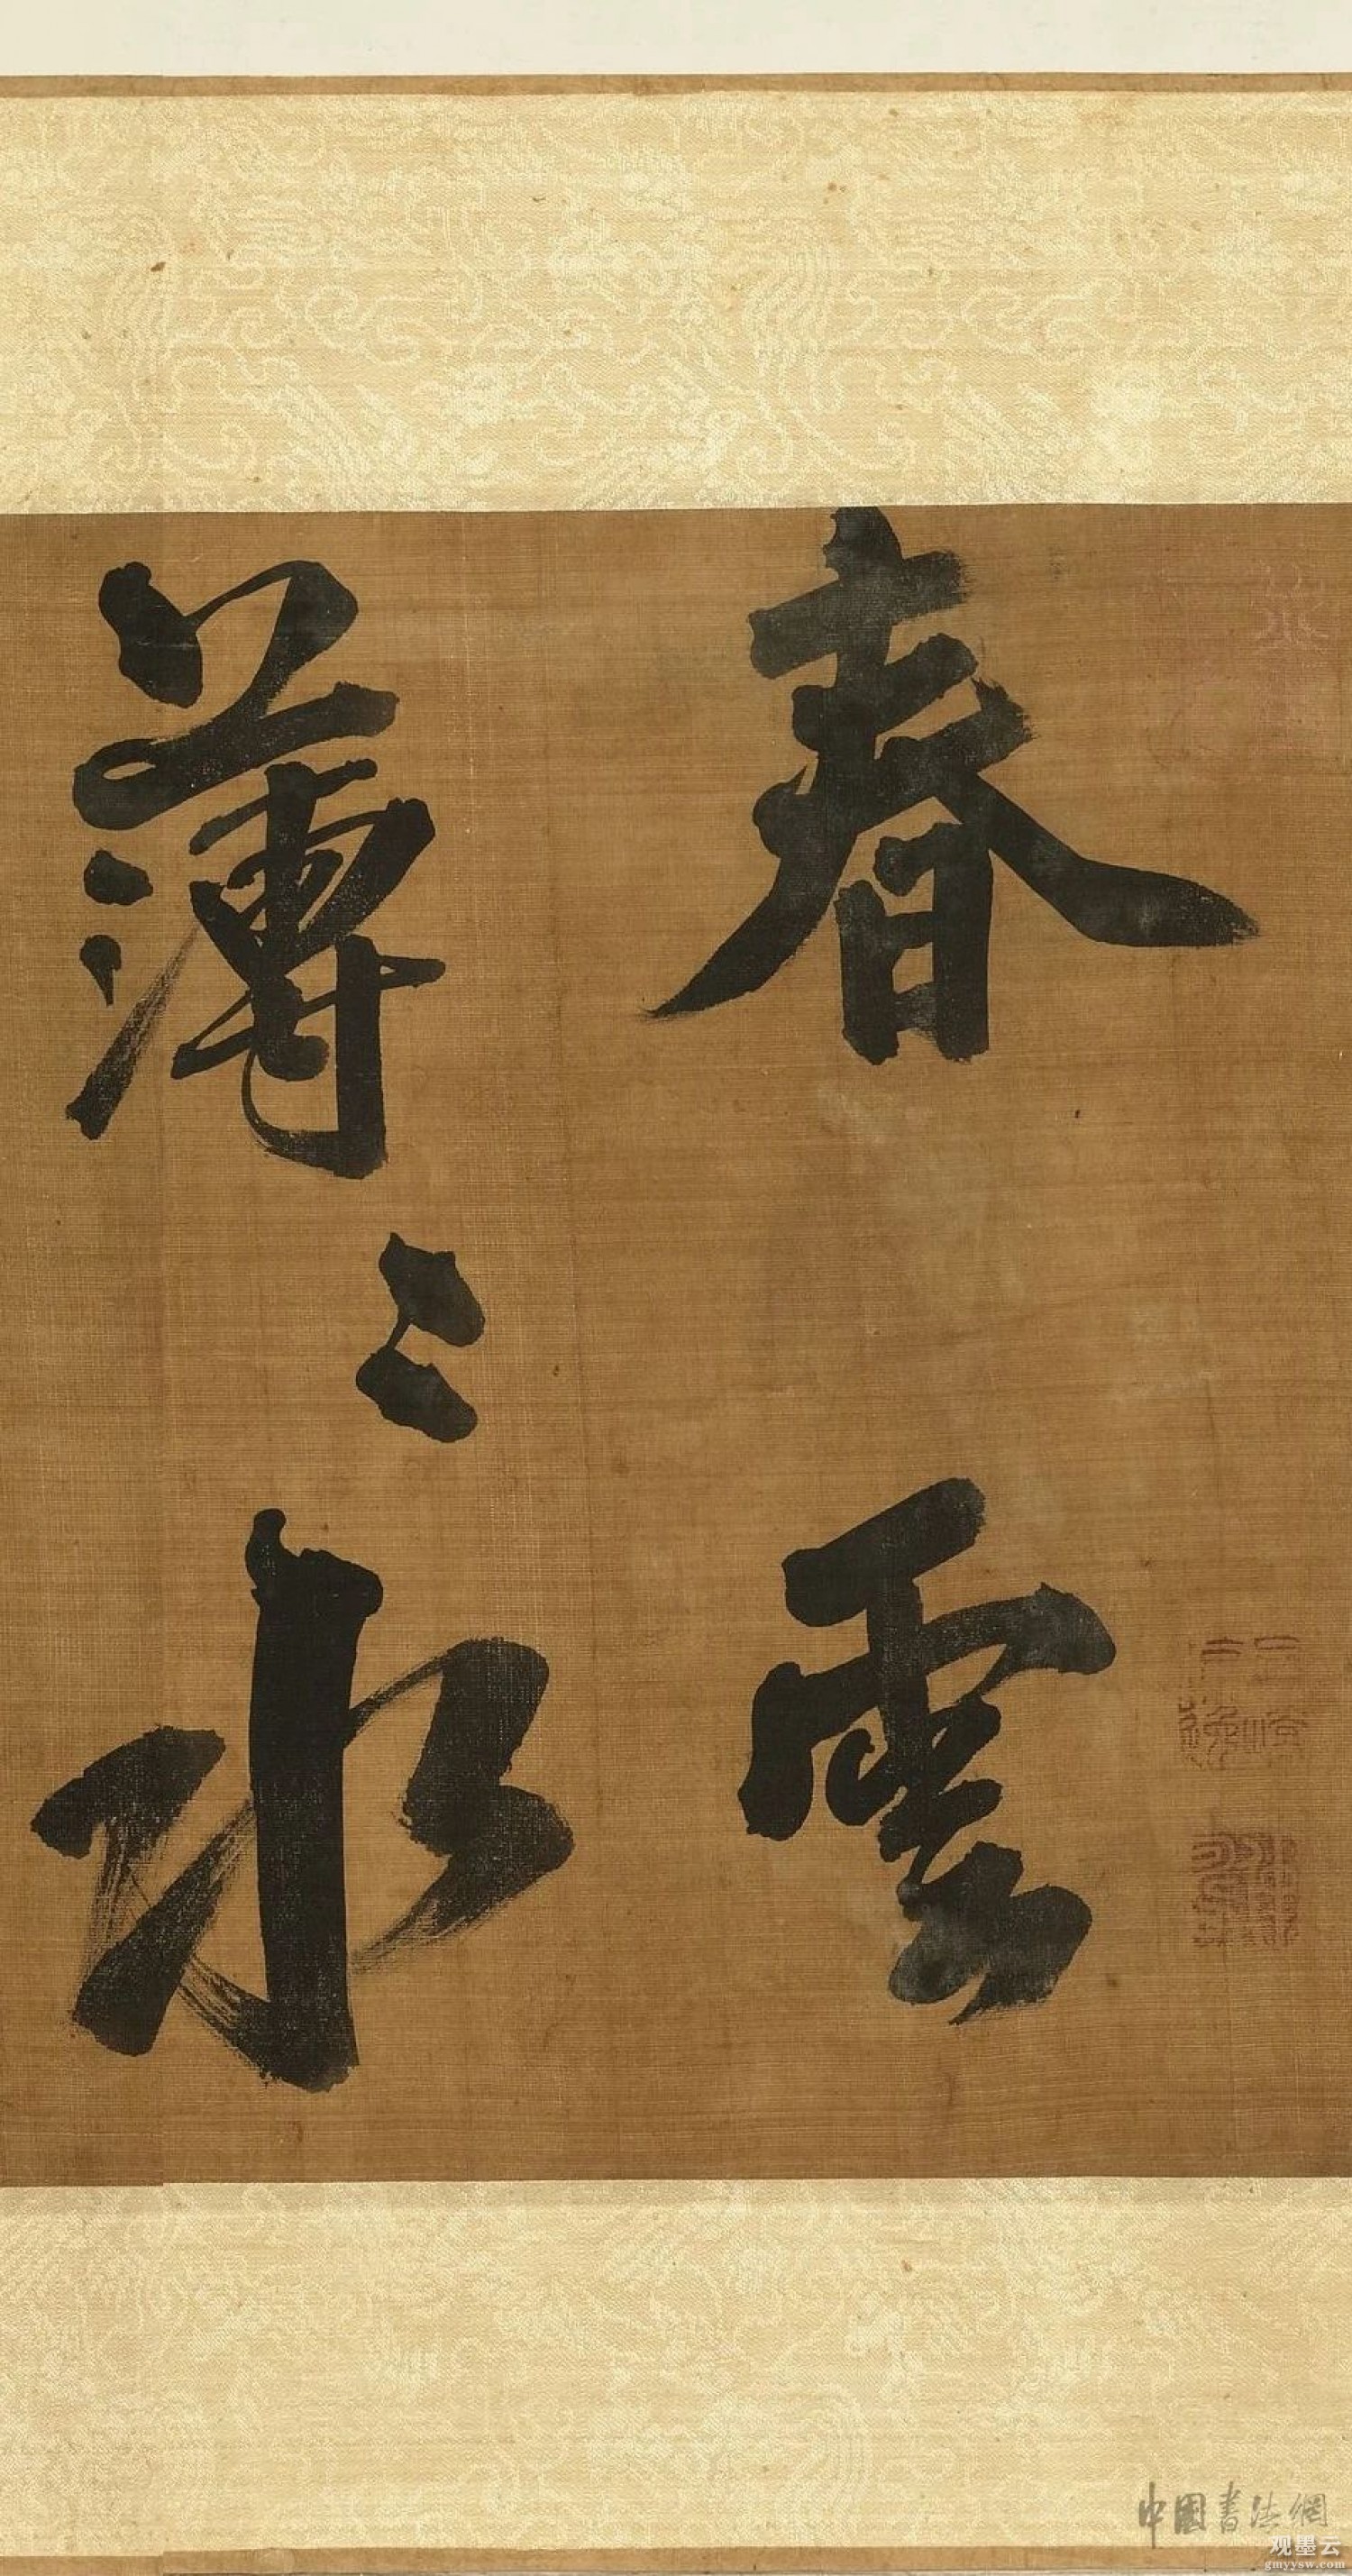 春雲
薄〻水
中國書法網
观墨云
gmyysw.com